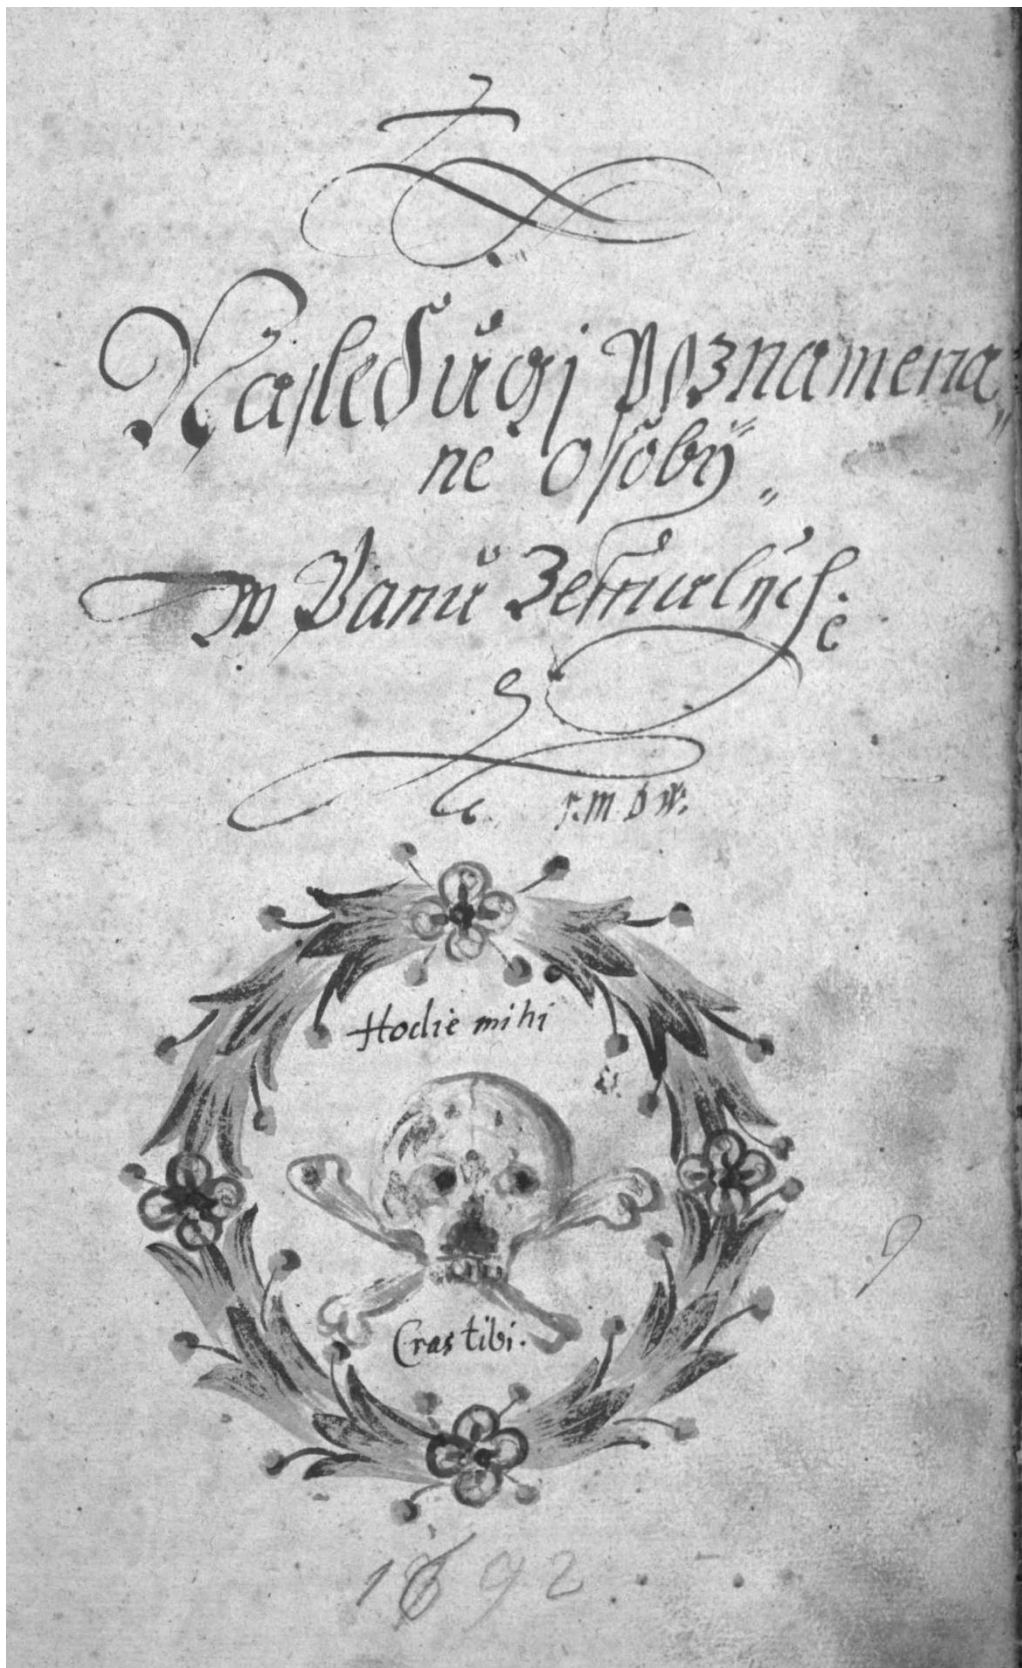 Nasledugj Poznamena„
ne osobÿ„
w Panu Zemrulých:
Hodie mihi
Cras tibi.
1692